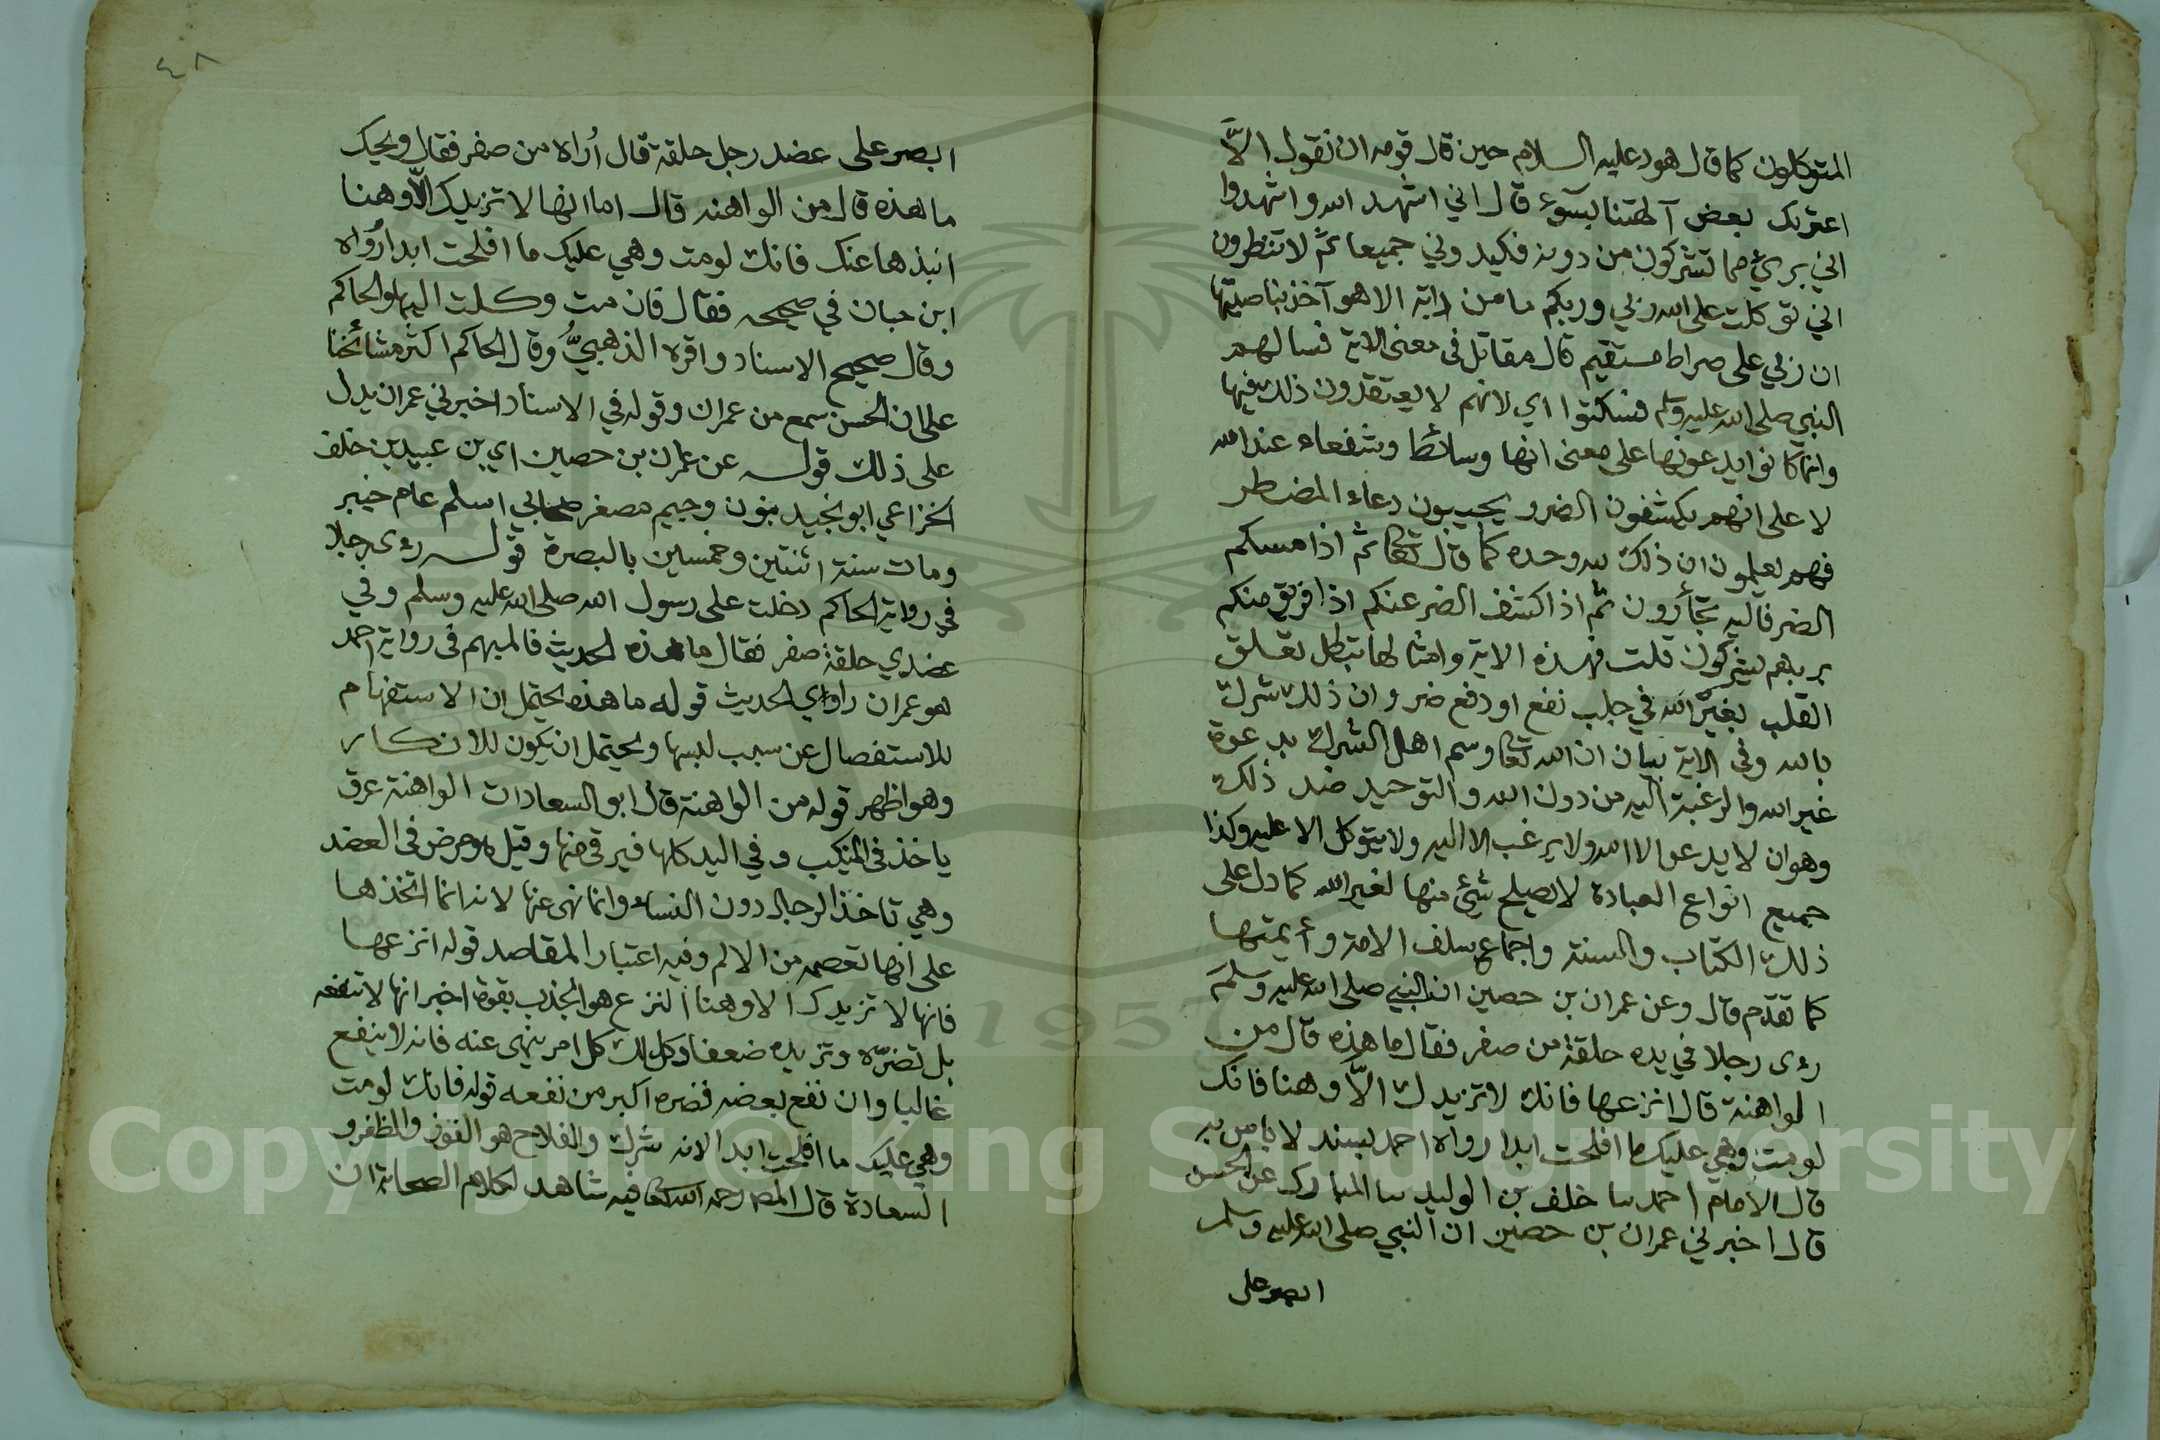 المتوكلون كما قال هود عليه السلام حين قال قومه ان نقول الاّ
اعتريك بعض آلهتنا بسوء قال اني اشهد الله واشهدوا
اني بريء مما تشركون من دونه فكيدوني جميعا ثم لا تنظرون
اني توكلت على الله ربي وربكم ما من دابة الا هو آخذ بناصيتها
ان ربي على صراط مستقيم قال مقاتل في معنى الاية فسالهم
النبي صلى الله عليه وسلم فسكتوا اي لانهم لا يعتقدون ذلك فيها
وانما كانوا يدعونها على معنى انها وسائط وشفعاء عند الله
لا على انهم يكشفون الضر ويجيبون دعاء المضطر
فهم يعلمون ان ذلك لله وحده كما قال تعالى ثم اذا مسكم
الضر فاليه تجأرون ثم اذا كشف الضر عنكم اذا فريق منكم
بربهم يشركون قلت فهذه الاية وامثالها تبطل تعلق
القلب بغير الله في جلب نفع او دفع ضر وان ذلك شرك
بالله وفي الاية بيان ان الله تعالى وسم اهل الشرك بدعوة
غير الله والرغبة اليه من دون الله والتوحيد ضد ذلك
وهو ان لا يدعو الا الله ولا يرغب الا اليه ولا يتوكل الا عليه وكذا
جميع انواع العبادة لا يصلح شيئ منها لغير الله كما دل على
ذلك الكتاب والسنة واجماع سلف الامة وأيمتها
كما تقدّم قال وعن عمران بن حصين ان النبي صلى الله عليه وسلم
رءى رجلا في يده حلقة من صفر فقال ما هذه قال من
الواهنة قال انزعها فانك لا تزيدك الاّ وهنا فانك
لو مت وهي عليك ما افلحت ابدا رواه احمد بسند لا باس به
قال الامام احمد سا خلف بن الوليد سا المبارك عن الحسن
قال اخبرني عمران بن حصين ان النبي صلى الله عليه وسلم
ابصر على
٤٨
ابصر على عضد رجل حلقة قال أراه من صفر فقال ويحك
ما هذه قال من الواهنه قال اما انها لا تزيدك الاّ وهنا
انبذها عنك فانك لو مت وهي عليك ما افلحت ابدا رواه
ابن حبان في صحيحه فقال فان مت وكلت اليها والحاكم
وقال صحيح الاسناد واقره الذهبيُّ وقال الحاكم اكثر مشائخنا
على ان الحسن سمع من عمران وقوله في الاسناد اخبرني عمران يدل
على ذلك قوله عن عمران بن حصين اي بن عبيد بن خلف
الخزاعي ابو نجيد بنون وجيم مصغر صحابي اسلم عام خيبر
ومات سنة اثنتين وخمسين بالبصرة قوله رءى رجلا
في رواية الحاكم دخلت على رسول الله صلى الله عليه وسلم وفي
عضدي حلقة صفر فقال ما هذه الحديث فالمبهم في رواية احمد
هو عمران راوي الحديث قوله ما هذه يحتمل ان الاستفهام
للاستفصال عن سبب لبسها ويحتمل ان يكون للانكار
وهو اظهر قوله من الواهنة قال ابو السعادات الواهنة عرق
ياخذ في المنكب وفي اليد كلها فيرقى منها وقيل هو مرض في العضد
وهي تاخذ الرجال دون النساء وانما نهى عنها لانه انما اتخذها
على انها تعصمه من الالم وفيه اعتبار المقاصد قوله انزعها
فانها لا تزيدك الا وهنا النزع هو الجذب بقوة اخبر انها لا تنفعه
بل تضرّه وتزيده ضعفا وكذلك كل امر ينهى عنه فانه لا ينفع
غالبا وان نفع بعضه فضره اكبر من نفعه قوله فانك لو مت
وهي عليك ما افلحت ابدا لانه شرك والفلاح هو الفوز والظفر و
السعادة قال المص رحمه الله تعالى فيه شاهد لكلام الصحابة ان